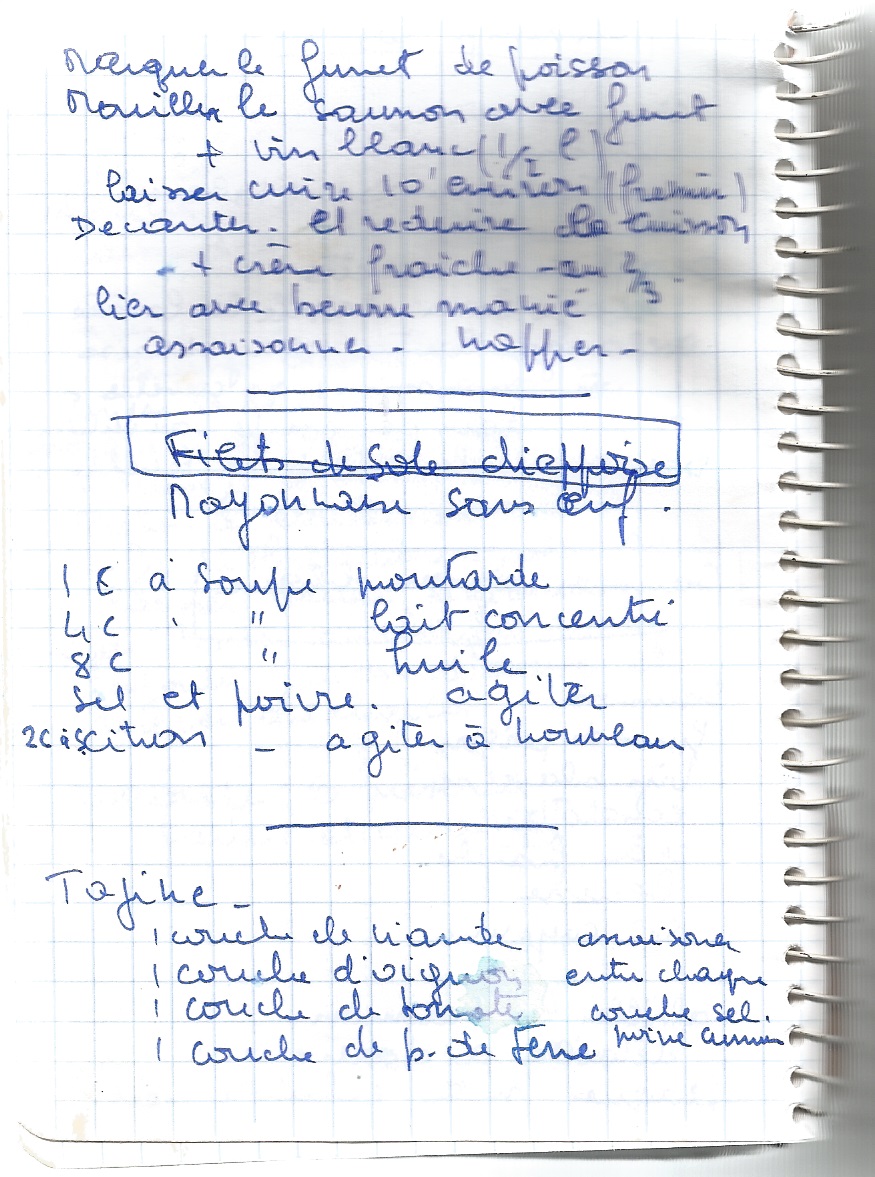 Marquer le fumet de poisson
Mouiller le saumon avec fumet
+ vin blanc (1/2 l)
laisser cuire 10' environ (frémir)
Decanter. et reduire la cuisson
- + crème fraiche - au 2/3.
lier avec beurre manié
assaisonner - napper -
Filets de Sole dieppoise
Mayonnaise sans œuf.
1 C à soupe moutarde
4 C ' " lait concentré
8 C " huile
Sel et poivre. agiter
2C à S citron - agiter à nouveau
Tajine -
1 couche de viande assaisonner
1 couche d'oignons entre chaque
1 couche de tomate couche sel.
1 couche de p. de Terre poivre cumin